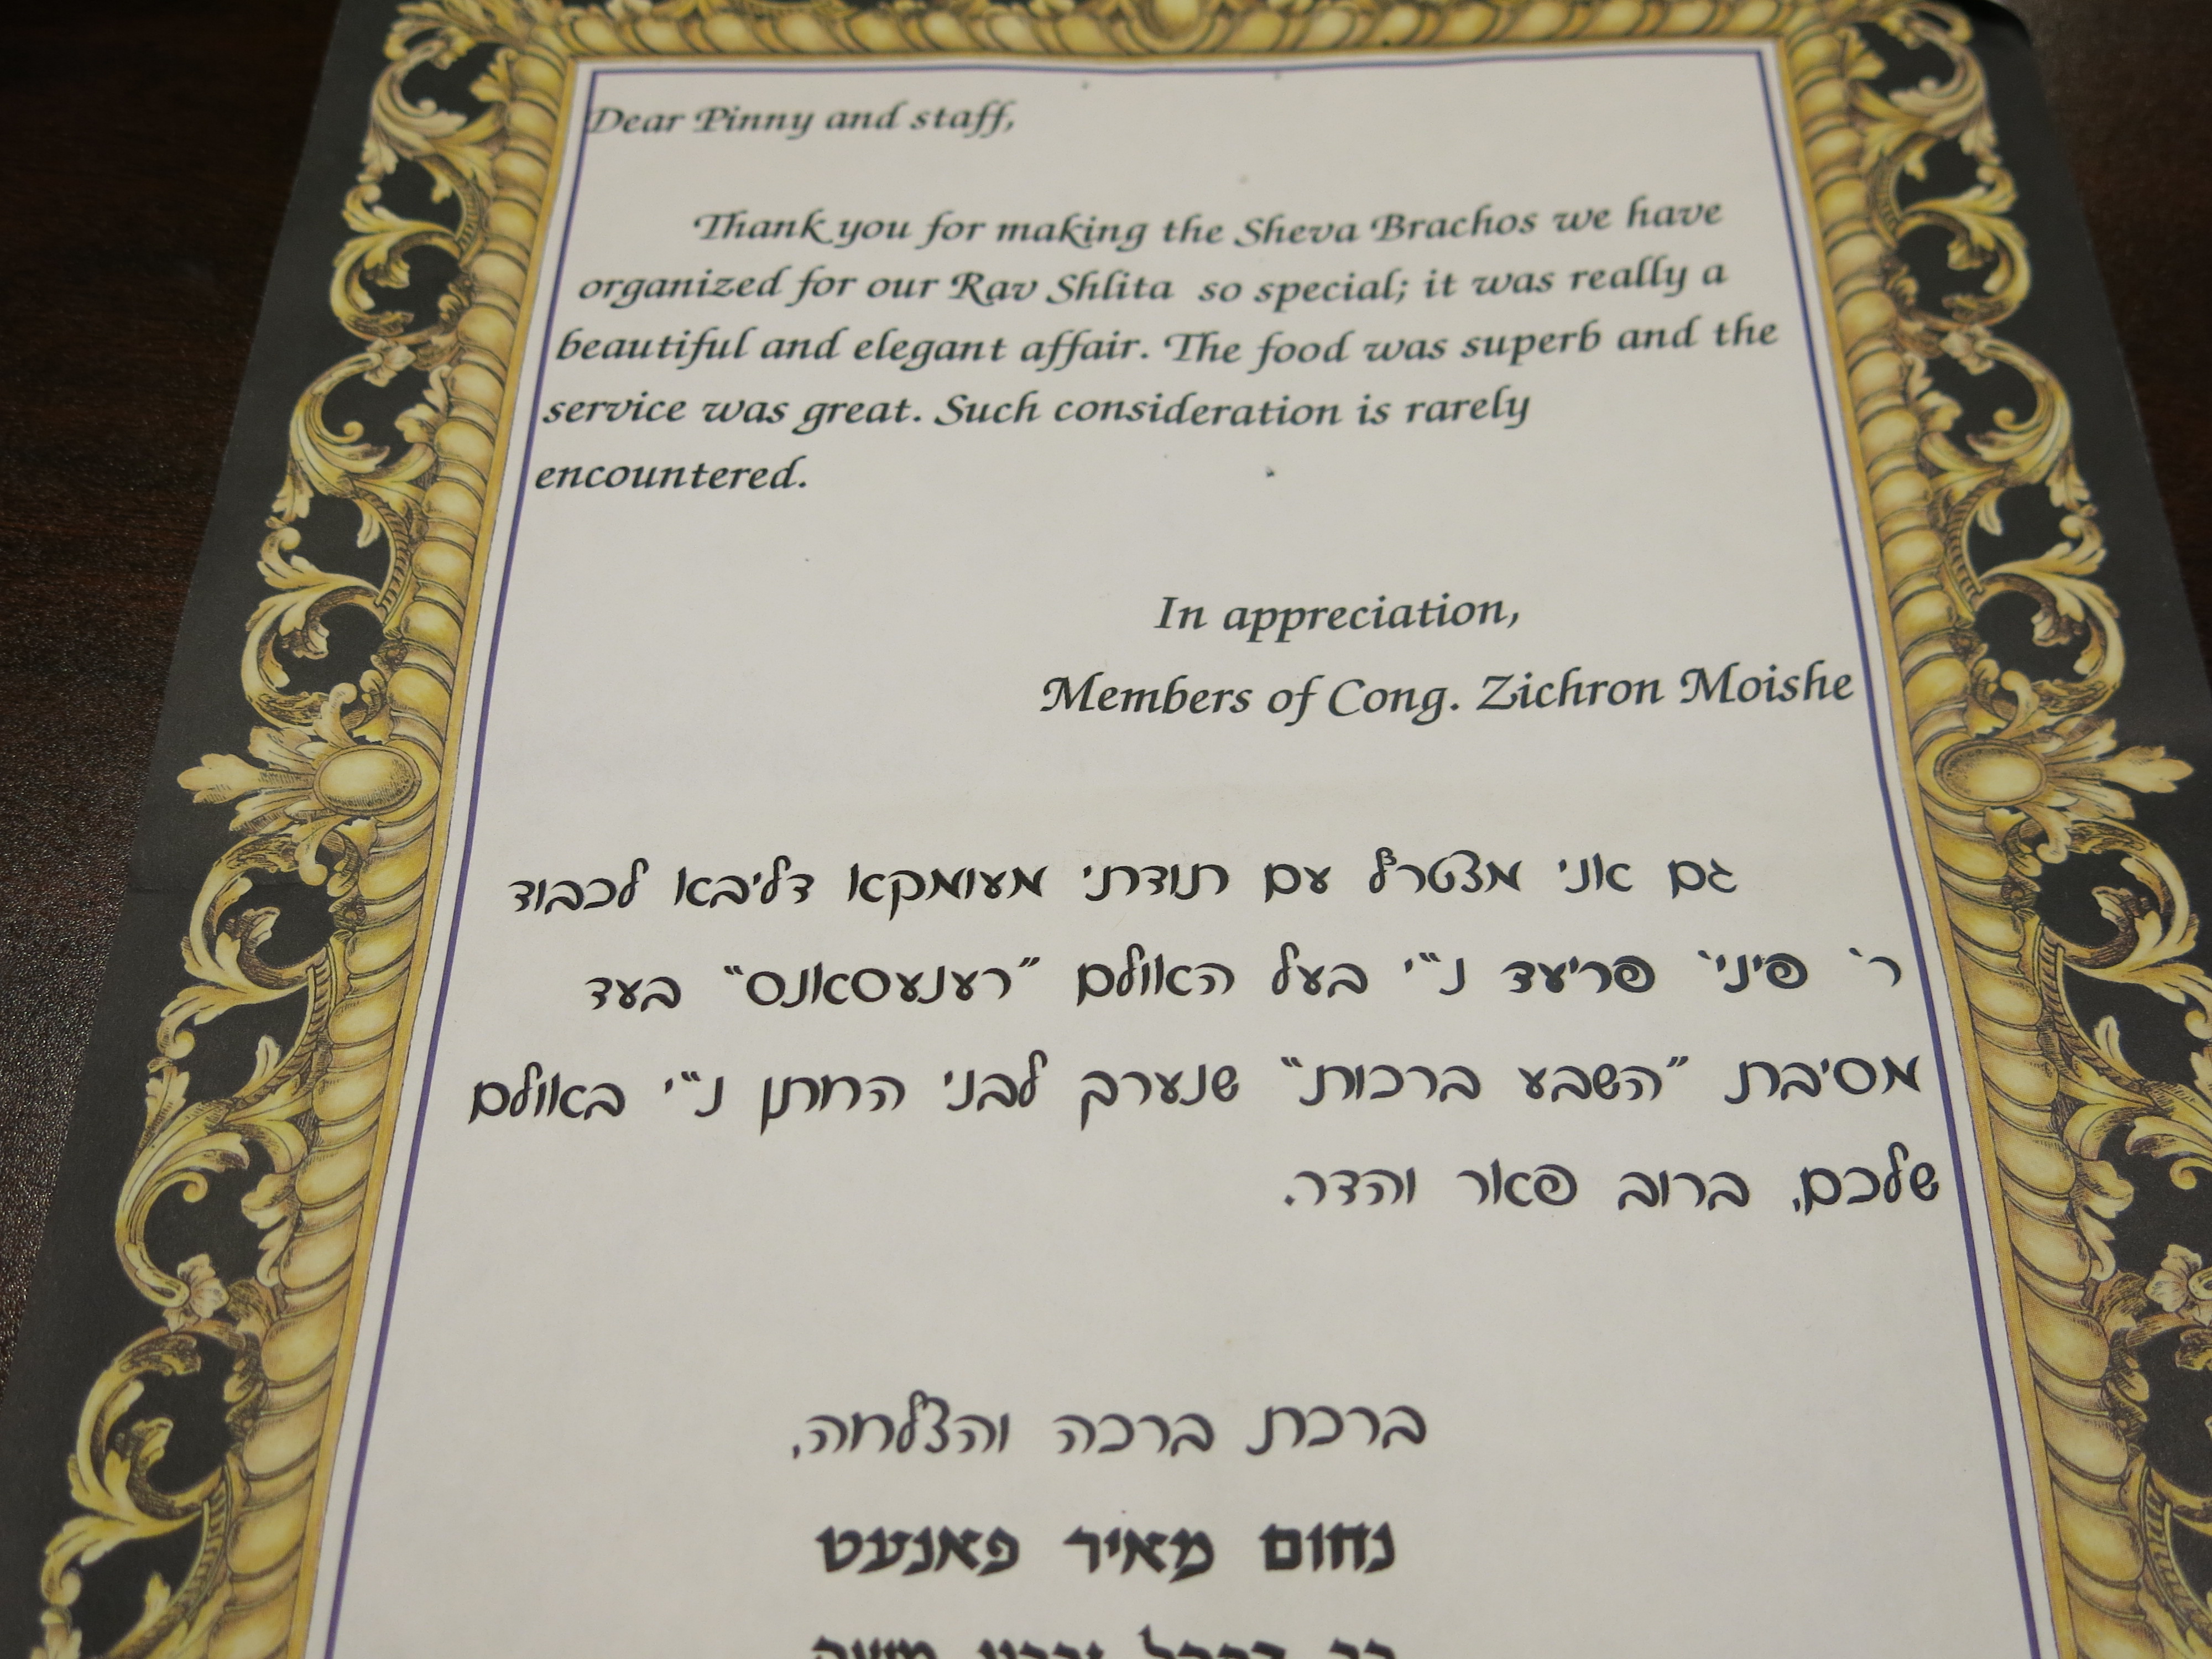 Dear Pinny and staff,
Thank you for making the Sheva Brachos we have
organized for our Rav Shlita so special; it was really a
beautiful and elegant affair. The food was superb and the
service was great. Such consideration is rarely
encountered.
In appreciation,
Members of Cong. Zichron Moishe
גם אני מצטרף עם תודתי מעומקא דליבא לכבוד
ר' פיני' פריעד נ"י בעל האולם "רענעסאנס" בעד
מסיבת "השבע ברכות" שנערך לבני החתן נ"י באולם
שלכם, ברוב פאר והדר.
ברכת ברכה והצלחה,
נחום מאיר פאנעט
רב דקהל זכרון משה